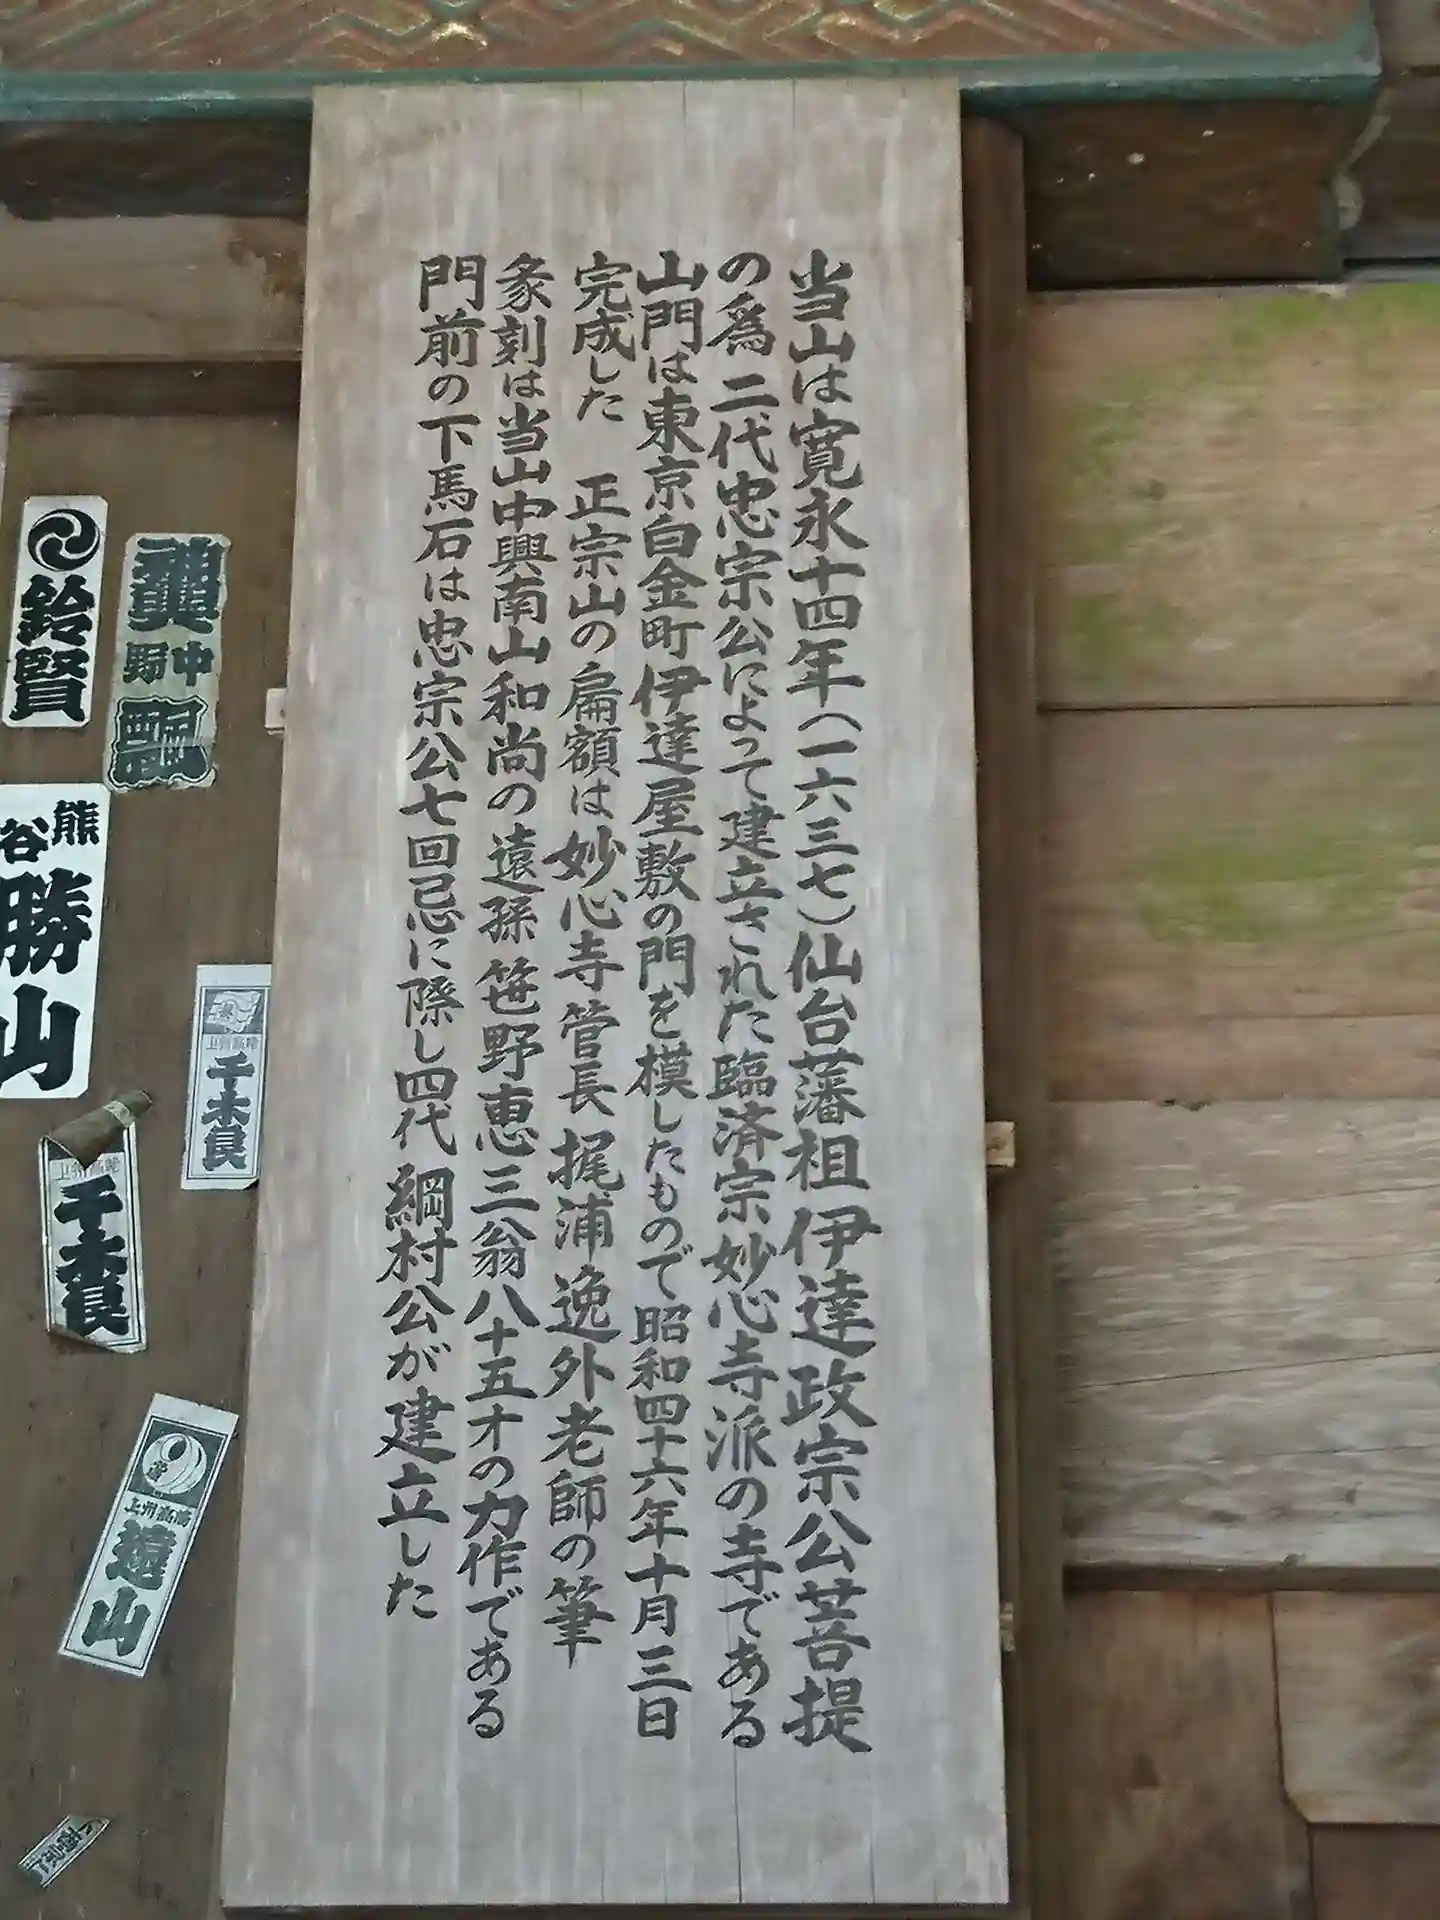 当山は寛永十四年（一六三七）仙台藩祖伊達政宗公菩提
の為 二代忠宗公によって建立された臨済宗妙心寺派の寺である
山門は東京白金町伊達屋敷の門を模したもので昭和四十六年十月三日
完成した 正宗山の扁額は妙心寺管長梶浦逸外老師の筆
彖刻は当山中興南山和尚の遠孫笹野恵三翁八十五才の力作である
門前の下馬石は忠宗公七回忌に際し四代綱村公が建立した
鈴賢
中
熊谷
勝山
上州高崎
千社良
上州高崎
遠山